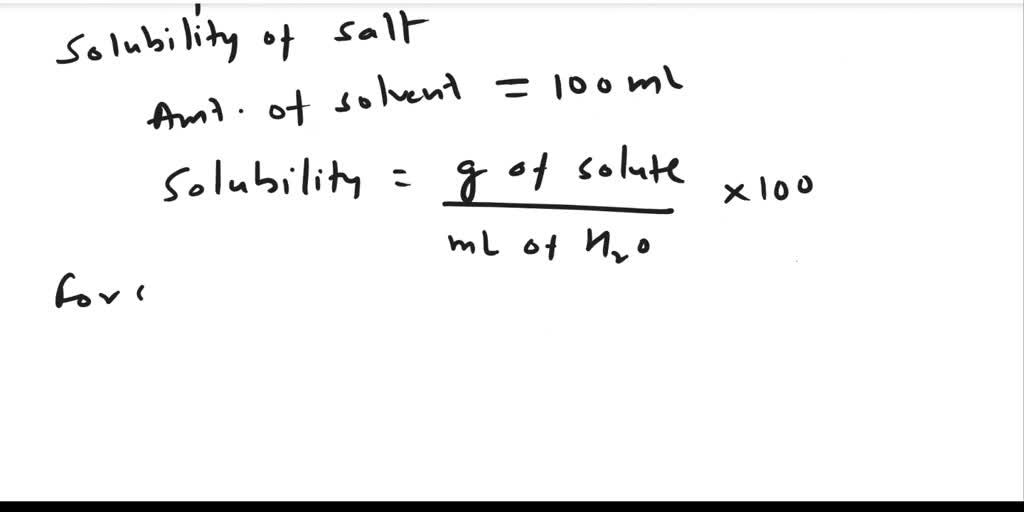 Solubility of salt
Amt. of solvent = 100 ml
Solubility = g of solute / mL of H₂O × 100
For (